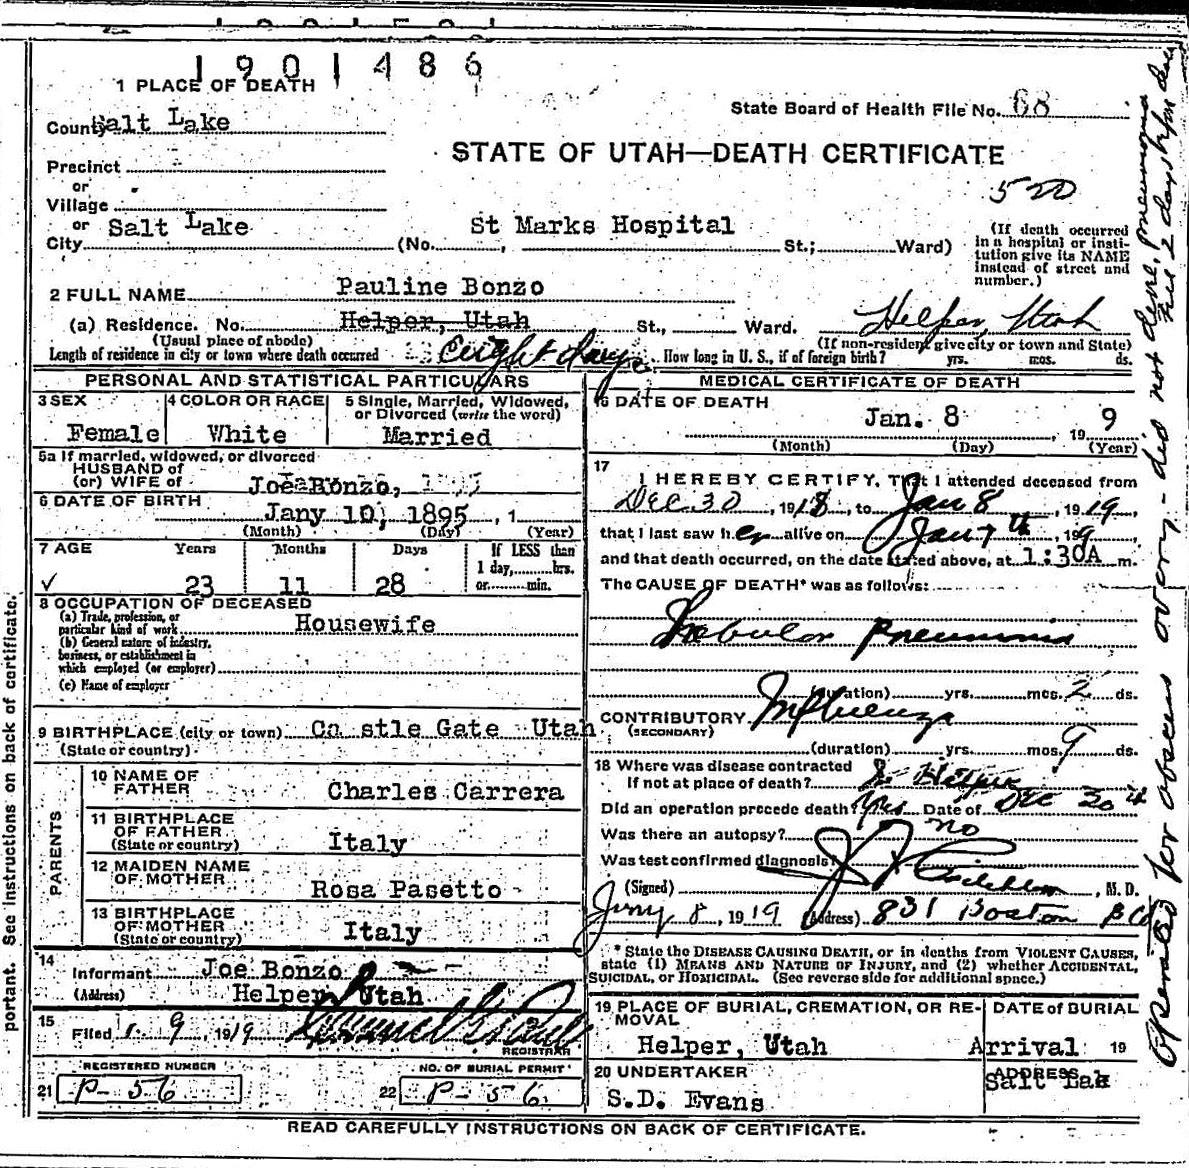 1901486
1 PLACE OF DEATH
State Board of Health File No. 68
County Salt Lake
STATE OF UTAH—DEATH CERTIFICATE
Precinct
or
Village
520
or Salt Lake
City
(No. , St Marks Hospital St.; Ward)
(If death occurred
in a hospital or insti-
tution give its NAME
instead of street and
number.)
2 FULL NAME Pauline Bonzo
(a) Residence. No. Helper, Utah St., Ward. Helper, Utah
(Usual place of abode) (If non-resident give city or town and State)
Length of residence in city or town where death occurred Eight days. How long in U. S., if of foreign birth? yrs. mos. ds.
PERSONAL AND STATISTICAL PARTICULARS
3 SEX Female
4 COLOR OR RACE White
5 Single, Married, Widowed,
or Divorced (write the word)
Married
5a If married, widowed, or divorced
HUSBAND of
(or) WIFE of Joe Bonzo,
6 DATE OF BIRTH Jany 10, 1895, 1
(Month) (Day) (Year)
7 AGE Years Months Days If LESS than
1 day, hrs.
or min.
23 11 28
8 OCCUPATION OF DECEASED
(a) Trade, profession, or
particular kind of work Housewife
(b) General nature of industry,
business, or establishment in
which employed (or employer)
(c) Name of employer
9 BIRTHPLACE (city or town) Castle Gate Utah
(State or country)
PARENTS
10 NAME OF
FATHER Charles Carrera
11 BIRTHPLACE
OF FATHER
(State or country) Italy
12 MAIDEN NAME
OF MOTHER Rosa Pasetto
13 BIRTHPLACE
OF MOTHER
(State or country) Italy
14
Informant Joe Bonzo
(Address) Helper, Utah
15
Filed 1-9, 1919
REGISTRAR
REGISTERED NUMBER
21 P-56
NO. OF BURIAL PERMIT
22 P-56
MEDICAL CERTIFICATE OF DEATH
16 DATE OF DEATH
Jan. 8, 19 9
(Month) (Day) (Year)
17
I HEREBY CERTIFY, That I attended deceased from
Dec 30, 1918, to Jan 8, 1919
that I last saw her alive on Jan 7th, 199,
and that death occurred, on the date stated above, at 1:30A m.
The CAUSE OF DEATH* was as follows:
Lobular Pneumonia
(duration) yrs. mos. 2 ds.
CONTRIBUTORY Influenza
(SECONDARY)
(duration) yrs. mos. 9 ds.
18 Where was disease contracted
if not at place of death? In Helper
Did an operation precede death? Yes Date of Dec 30th
Was there an autopsy? no
Was test confirmed diagnosis?
(Signed) , M. D.
Jany 8, 1919 (Address) 831 Boston Bld
* State the DISEASE CAUSING DEATH, or in deaths from VIOLENT CAUSES,
state (1) MEANS AND NATURE OF INJURY, and (2) whether ACCIDENTAL,
SUICIDAL, or HOMICIDAL. (See reverse side for additional space.)
19 PLACE OF BURIAL, CREMATION, OR RE-
MOVAL
Helper, Utah
DATE of BURIAL
Arrival 19
20 UNDERTAKER
S.D. Evans
ADDRESS
Salt Lak
READ CAREFULLY INSTRUCTIONS ON BACK OF CERTIFICATE.
portant. See instructions on back of certificate.
Operated for abscess ovary - did not done, pneumonia